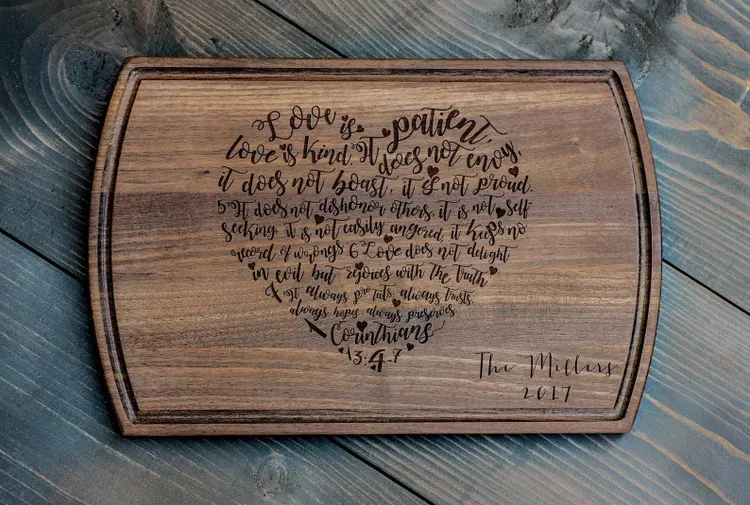 Love is patient,
love is kind. It does not envy,
it does not boast, it is not proud.
5 It does not dishonor others, it is not self
seeking, it is not easily angered, it keeps no
record of wrongs 6 Love does not delight
in evil but rejoices with the truth
7 It always protects, always trusts,
always hopes always preserves
1 Corinthians
13:4-7
The Millers
2017